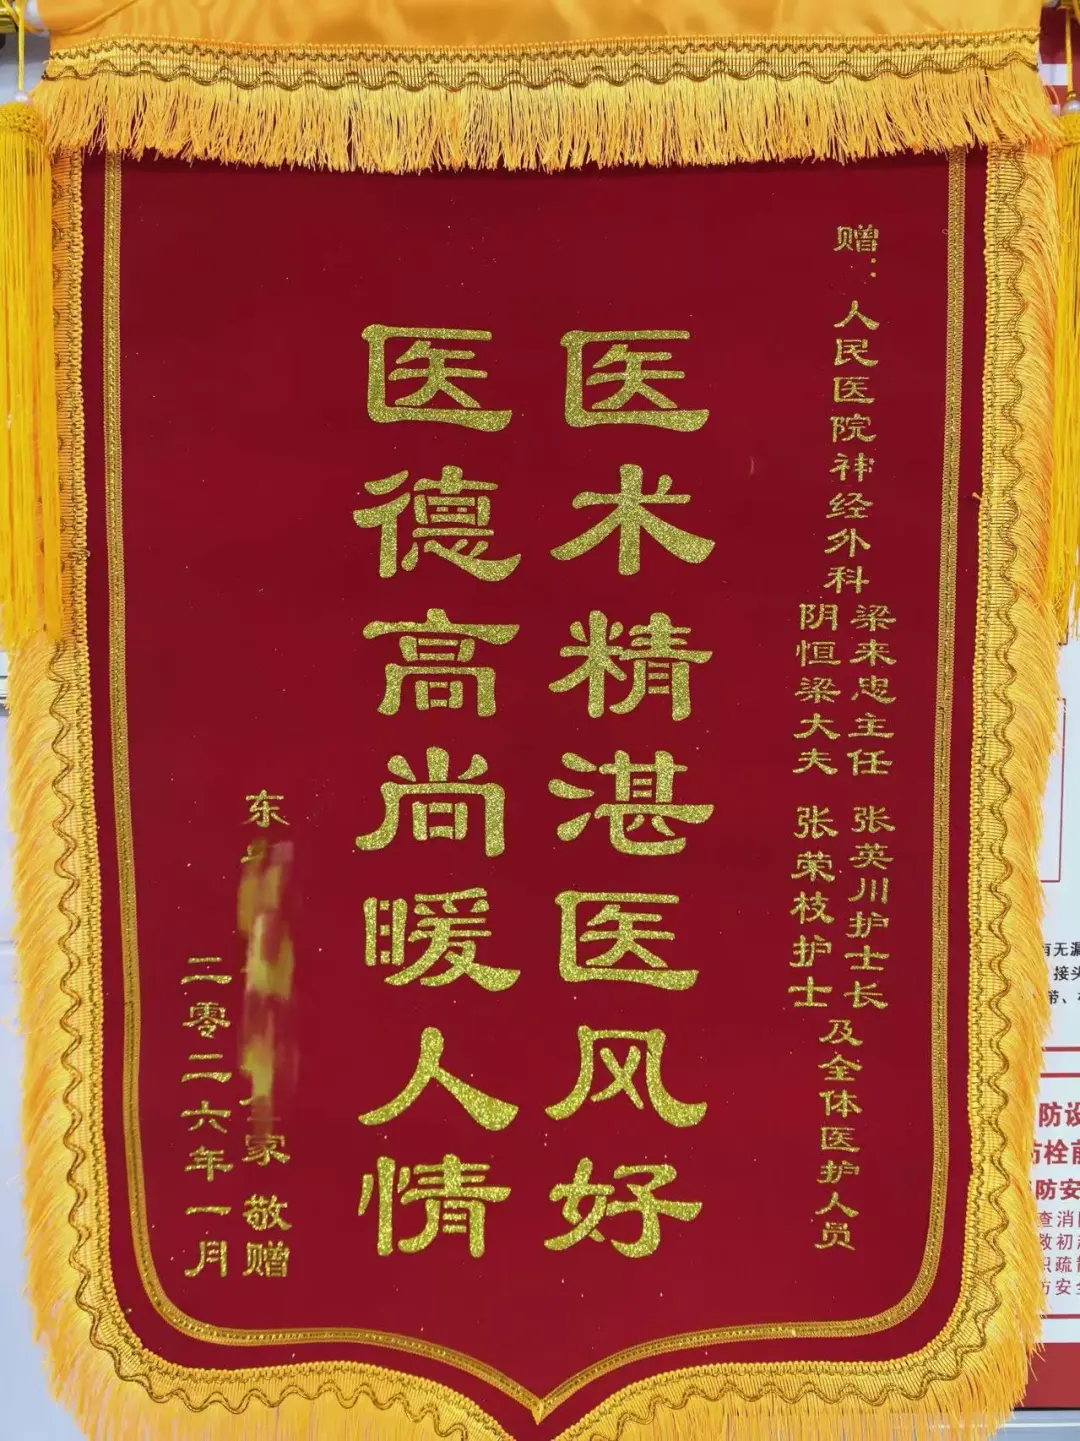 赠：人民医院神经外科
梁来忠主任 张英川护士长
阴恒梁大夫 张荣枝护士
及全体医护人员
医术精湛医风好
医德高尚暖人情
东
家 敬赠
二零二六年一月
有无漏
接头
带、
防设
防栓前
防安
查消
救初
织疏散
防安全